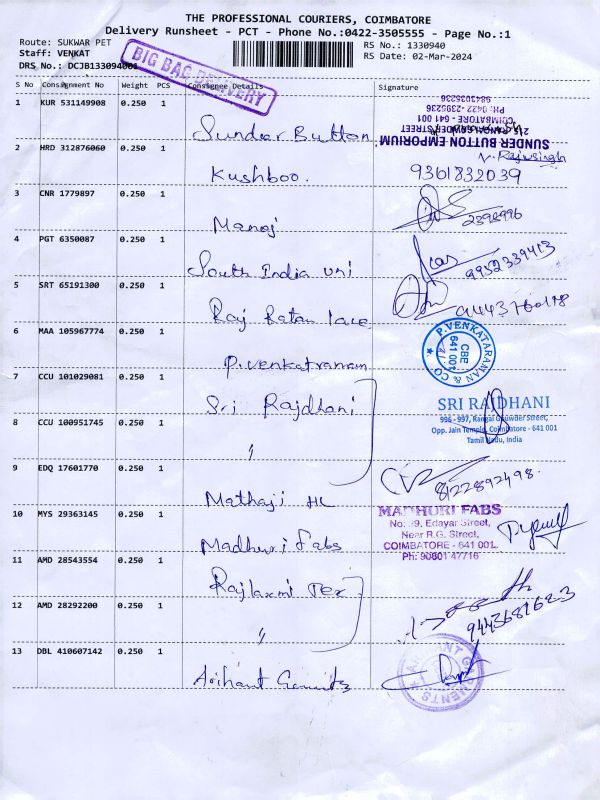 THE PROFESSIONAL COURIERS, COIMBATORE
Delivery Runsheet - PCT - Phone No.:0422-3505555 - Page No.:1
Route: SUKWAR PET
Staff: VENKAT
DRS No.: DCJB133094001
RS No.: 1330940
RS Date: 02-Mar-2024
BIG BAG DELIVERY
S No Consignment No Weight PCS Consignee Details Signature
1 KUR 531149908 0.250 1 Sundar Button
SUNDER BUTTON EMPORIUM
COIMBATORE - 641 001
PH: 0422 - 2395236
9843035236
2 HRD 312876060 0.250 1 Kushboo. 9361832039
3 CNR 1779897 0.250 1 Manoj
4 PGT 6350087 0.250 1 South India uni 9952339413
5 SRT 65191300 0.250 1 Raj Ratan lace
6 MAA 105967774 0.250 1 P.venkatraman
P.VENKATARAMAN & CO
CBE
641 001
7 CCU 101029081 0.250 1 Sri Rajdhani
SRI RAJDHANI
996 - 997, Rangai Gowder Street,
Opp. Jain Temple, Coimbatore - 641 001
Tamil Nadu, India
8 CCU 100951745 0.250 1 "
9 EDQ 17601770 0.250 1 Mathaji HL 8122892498.
10 MYS 29363145 0.250 1 Madhuri Fabs
MADHURI FABS
Edayar Street,
Near R.G. Street,
COIMBATORE - 641 001.
Ph: 90801 47716
11 AMD 28543554 0.250 1 Rajlaxmi Tex
12 AMD 28292200 0.250 1 "
13 DBL 410607142 0.250 1 Arihant Garments
ARIHANT GARMENTS